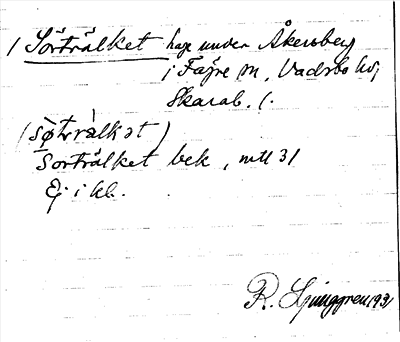 / Sörträlket hage under Åkersberg
i Fägre sn, Vadsbo hd,
Skarab. l.
(søträlkət)
Sorträlket bek, mtl 31
Ej i kl.
R. Ljunggren 1931